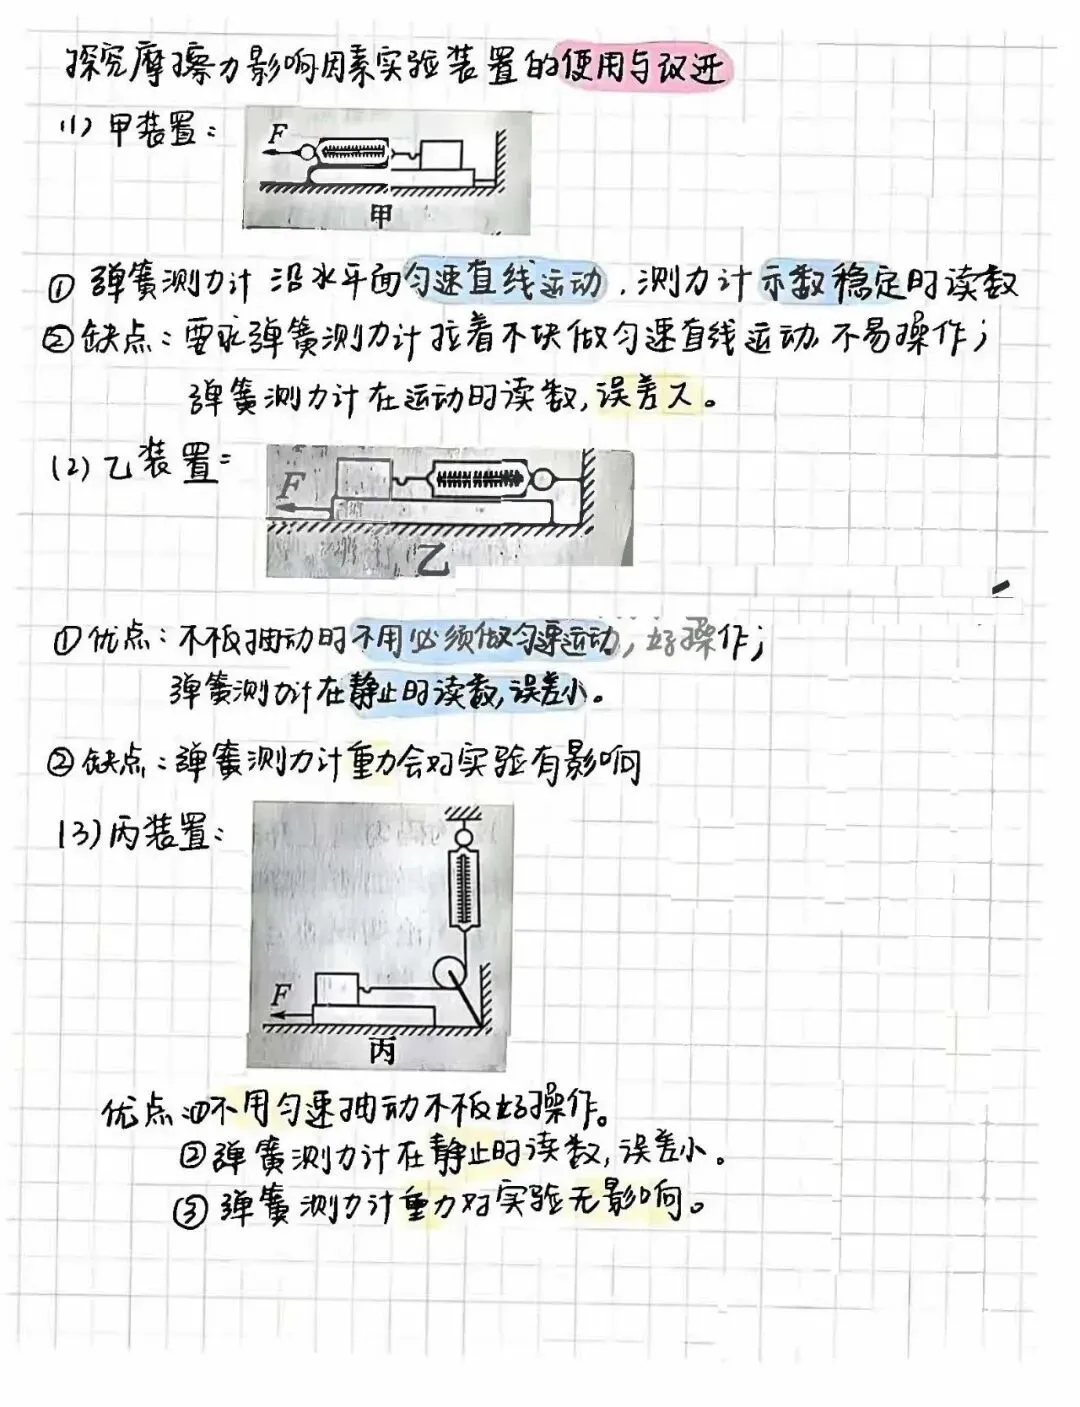 探究摩擦力影响因素实验装置的使用与改进
(1) 甲装置:
F
甲
① 弹簧测力计沿水平面匀速直线运动,测力计示数稳定时读数
②缺点:要求弹簧测力计拉着木块做匀速直线运动,不易操作;
弹簧测力计在运动时读数,误差大。
(2)乙装置:
F
乙
①优点:木板抽动时不用必须做匀速运动,好操作;
弹簧测力计在静止时读数,误差小。
②缺点:弹簧测力计重力会对实验有影响
(3)丙装置:
F
丙
优点:①不用匀速抽动木板好操作。
②弹簧测力计在静止时读数,误差小。
③弹簧测力计重力对实验无影响。